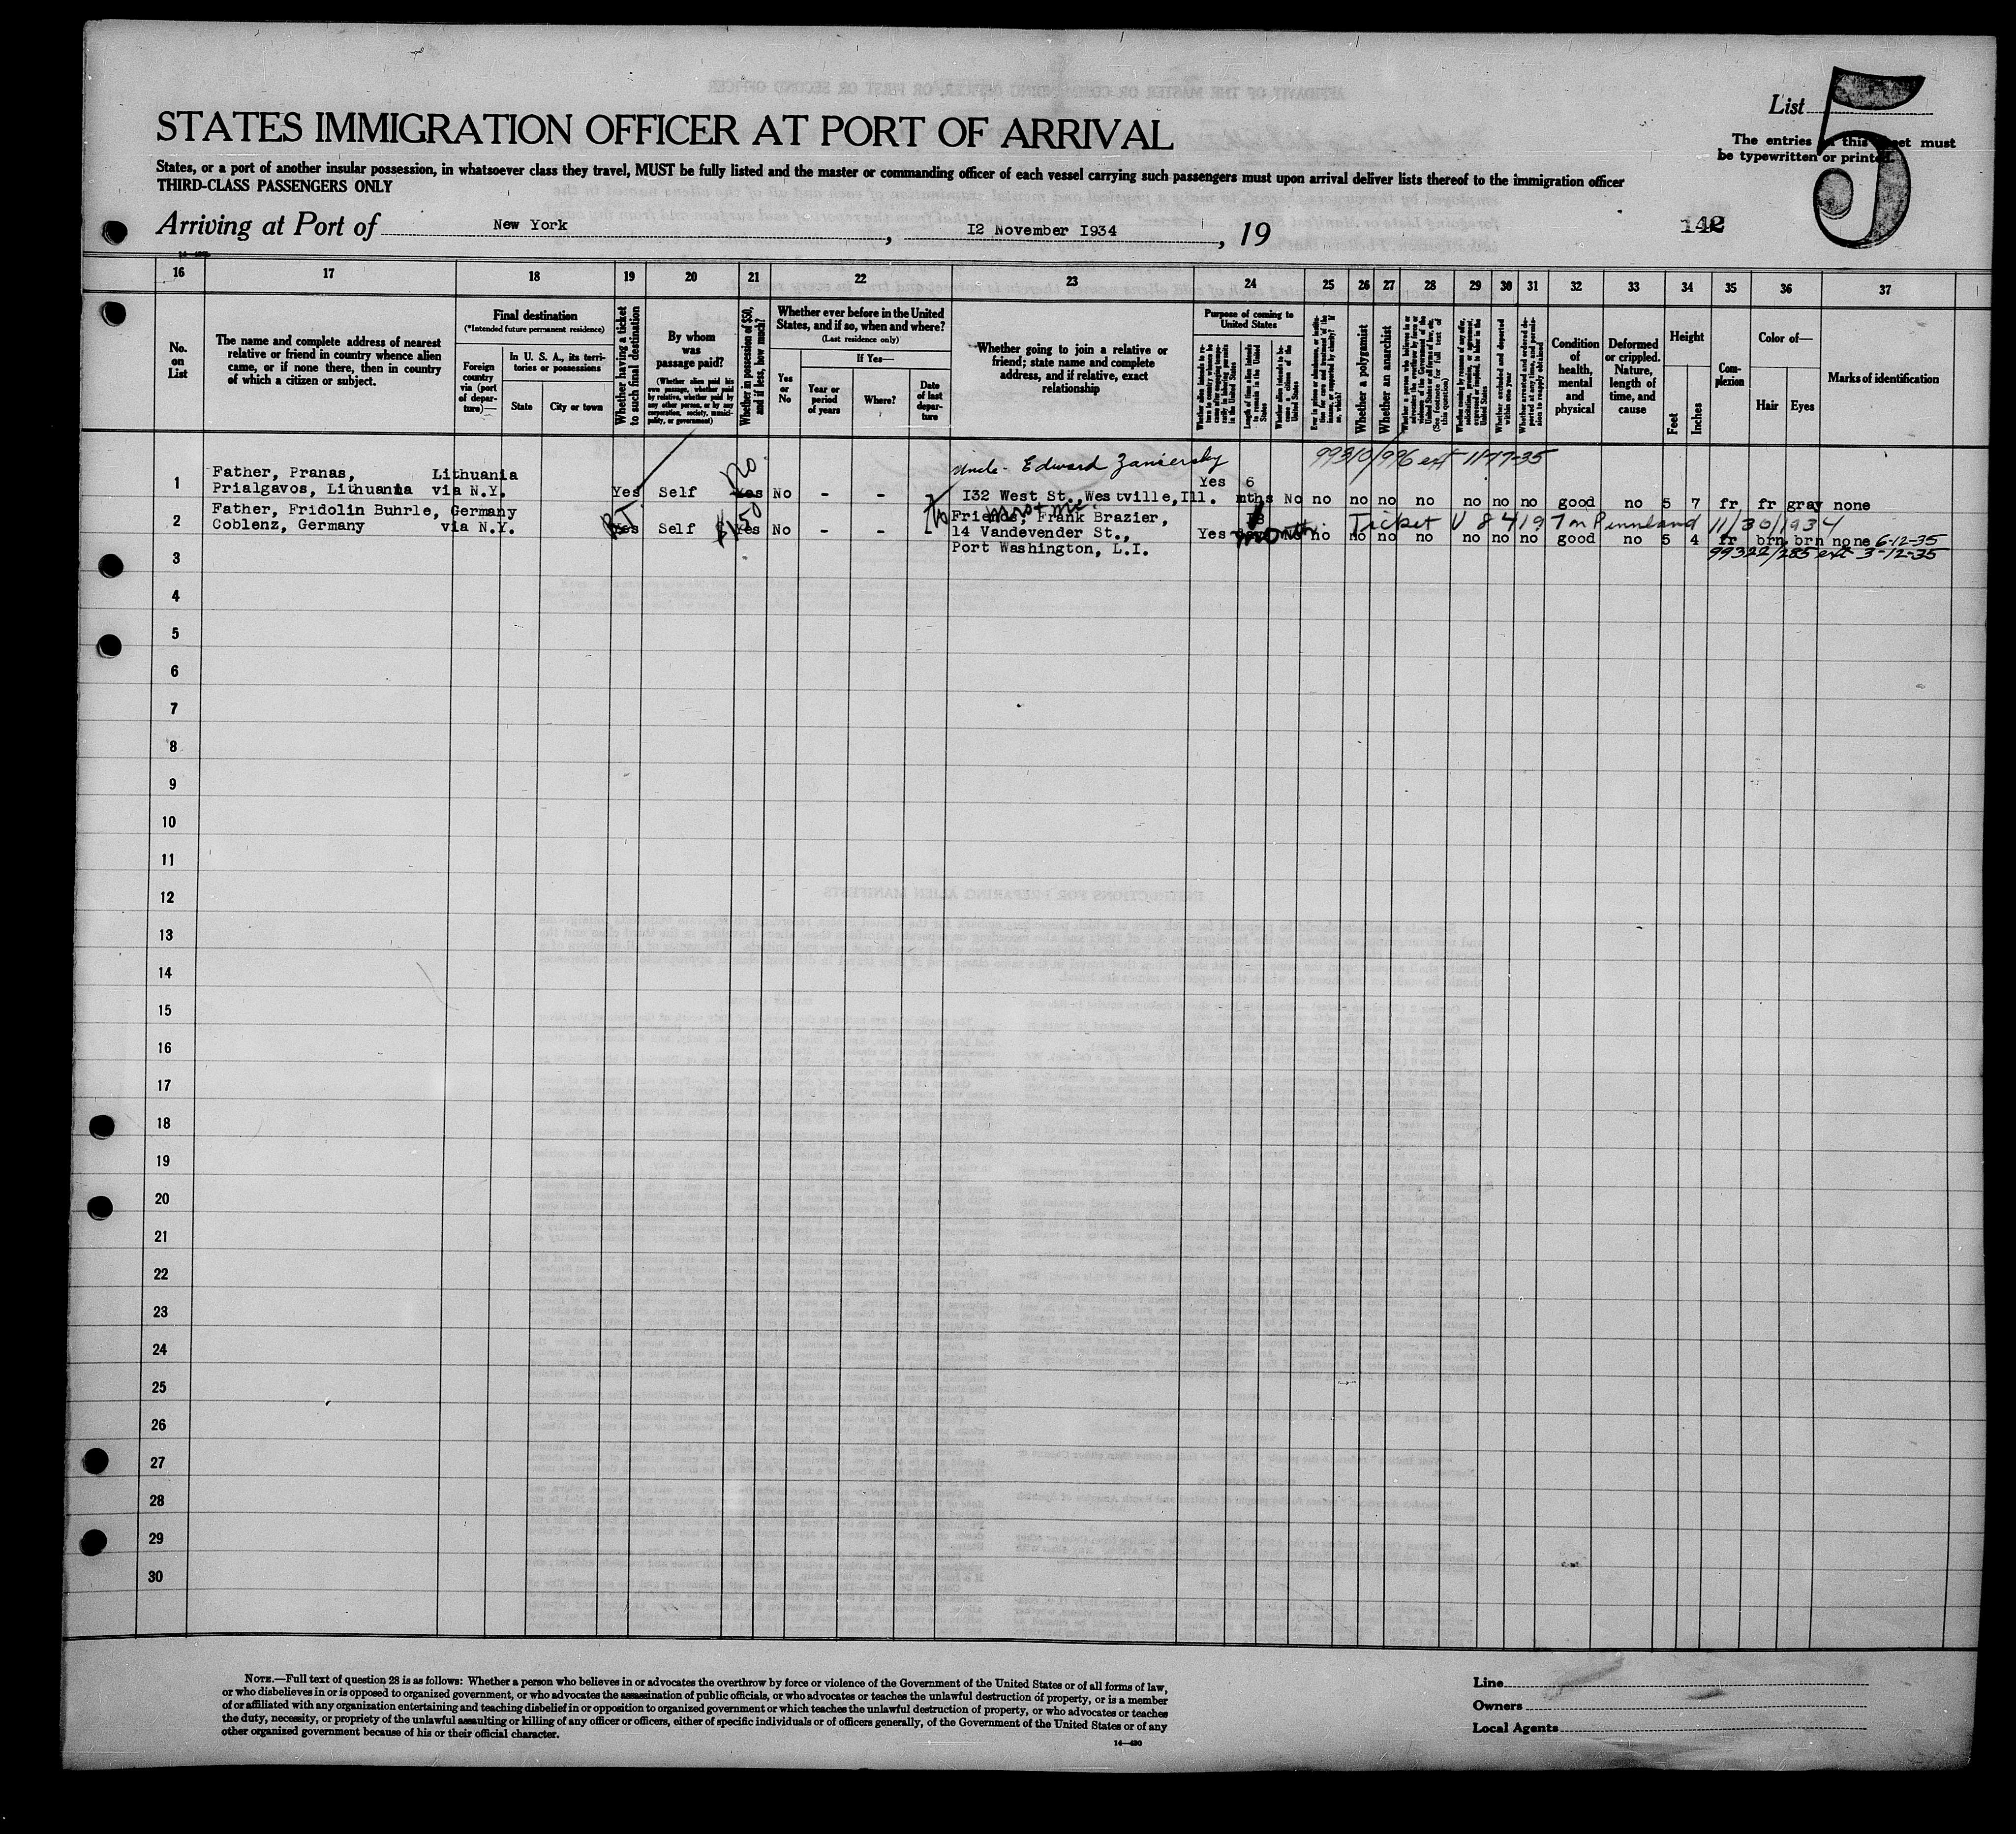 List 5
STATES IMMIGRATION OFFICER AT PORT OF ARRIVAL
The entries this sheet must
be typewritten or printed.
States, or a port of another insular possession, in whatsoever class they travel, MUST be fully listed and the master or commanding officer of each vessel carrying such passengers must upon arrival deliver lists thereof to the immigration officer
THIRD-CLASS PASSENGERS ONLY
Arriving at Port of New York, 12 November 1934, 19
142
16 17 18 19 20 21 22 23 24 25 26 27 28 29 30 31 32 33 34 35 36 37
No. on List
The name and complete address of nearest relative or friend in country whence alien came, or if none there, then in country of which a citizen or subject.
Final destination
(*Intended future permanent residence)
Foreign country via (port of departure)—
In U. S. A., its territories or possessions
State
City or town
Whether having a ticket to such final destination
By whom was passage paid?
(Whether alien paid his own passage, whether paid by relative, whether paid by any other person, or by any corporation, society, municipality, or government)
Whether in possession of $50, and if less, how much?
Whether ever before in the United States, and if so, when and where?
(Last residence only)
Yes or No
If Yes—
Year or period of years
Where?
Date of last departure
Whether going to join a relative or friend; state name and complete address, and if relative, exact relationship
Purpose of coming to United States
Length of time alien intends to remain in the United States
Whether alien intends to become a citizen of the United States
Whether a polygamist
Whether an anarchist
(See footnote for full text of this question)
Whether excluded and deported within one year
Condition of health, mental and physical
Deformed or crippled. Nature, length of time, and cause
Height
Feet
Inches
Complexion
Color of—
Hair
Eyes
Marks of identification
no.
Uncle - Edward
99310/996 ext 11-77-35
1 Father, Pranas, Lithuania
Prialgavos, Lithuania via N.Y. Yes Self Yes No - - 132 West St., Westville, Ill. Yes 6 mths No no no no no no no no good no 5 7 fr fr gray none
2 Father, Fridolin Buhrle, Germany
Coblenz, Germany via N.Y. Yes Self $150 Yes No - - to Friends, Mr & Mrs Frank Brazier,
14 Vandevender St., Yes month No no no no no no no no good no 5 4 fr brn brn none 6-12-35
Port Washington, L.I.
Ticket U 84197 on Pennland 11/30/1934
99322/285 ext 3-12-35
3
4
5
6
7
8
9
10
11
12
13
14
15
16
17
18
19
20
21
22
23
24
25
26
27
28
29
30
NOTE.—Full text of question 28 is as follows: Whether a person who believes in or advocates the overthrow by force or violence of the Government of the United States or of all forms of law,
or who disbelieves in or is opposed to organized government, or who advocates the assassination of public officials, or who advocates or teaches the unlawful destruction of property, or is a member
of or affiliated with any organization entertaining and teaching disbelief in or opposition to organized government or which teaches the unlawful destruction of property, or who advocates or teaches
the duty, necessity, or propriety of the unlawful assaulting or killing of any officer or officers, either of specific individuals or of officers generally, of the Government of the United States or of any
other organized government because of his or their official character.
14—430
Line
Owners
Local Agents